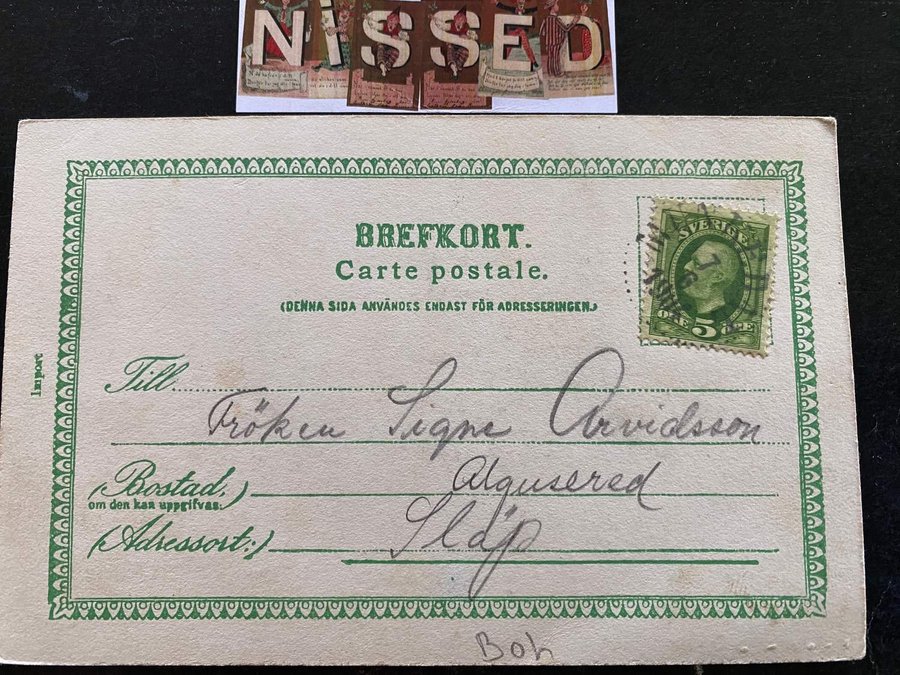 NISSED
BREFKORT.
Carte postale.
(DENNA SIDA ANVÄNDES ENDAST FÖR ADRESSERINGEN.)
SVERIGE
ÖRE 5 ÖRE
Import
Till
Fröken Signe Arvidsson
(Bostad:)
om den kan uppgifvas:
Algusered
(Adressort:)
Släp
Boh